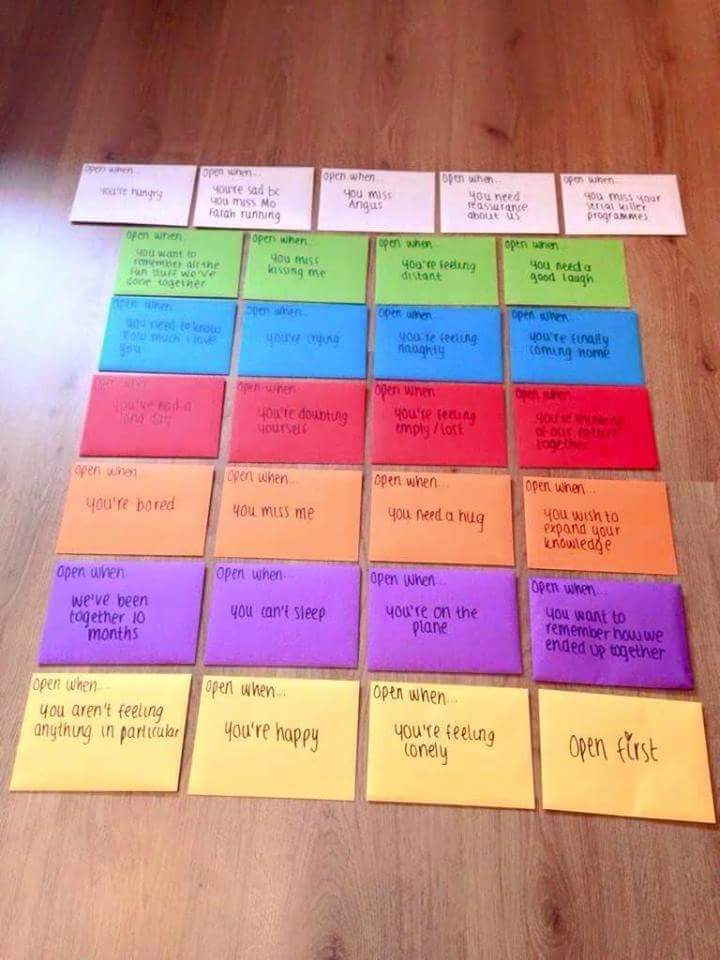 Open when...
you're hungry
Open when...
you're sad bc
you miss Mo
Farah running
Open when...
you miss
Angus
Open when...
you need
reassurance
about us
Open when...
you miss your
serial killer
programmes
Open when...
you want to
remember all the
fun stuff we've
done together
Open when...
you miss
kissing me
Open when...
you're feeling
distant
Open when...
you need a
good laugh
Open when...
you need to know
how much i love
you
Open when...
you're crying
Open when...
you're feeling
naughty
Open when
you're finally
coming home
Open when...
you've had a
long day
Open when...
you're doubting
yourself
Open when
you're feeling
empty / lost
Open when...
you're thinking
of our future
together
Open when
you're bored
Open when...
you miss me
Open when...
you need a hug
Open when...
you wish to
expand your
knowledge
Open when
we've been
together 10
months
Open when...
you can't sleep
Open when...
you're on the
plane
Open when...
you want to
remember how we
ended up together
Open when...
you aren't feeling
anything in particular
Open when...
you're happy
Open when...
you're feeling
lonely
Open first